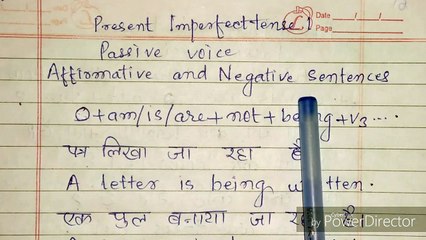 Present Imperfect tense
Date / /
Page
Passive voice
Affirmative and Negative sentences
O+am/is/are+not+being+v3....
पत्र लिखा जा रहा है
A letter is being written.
एक पुल बनाया जा रहा है।
by PowerDirector